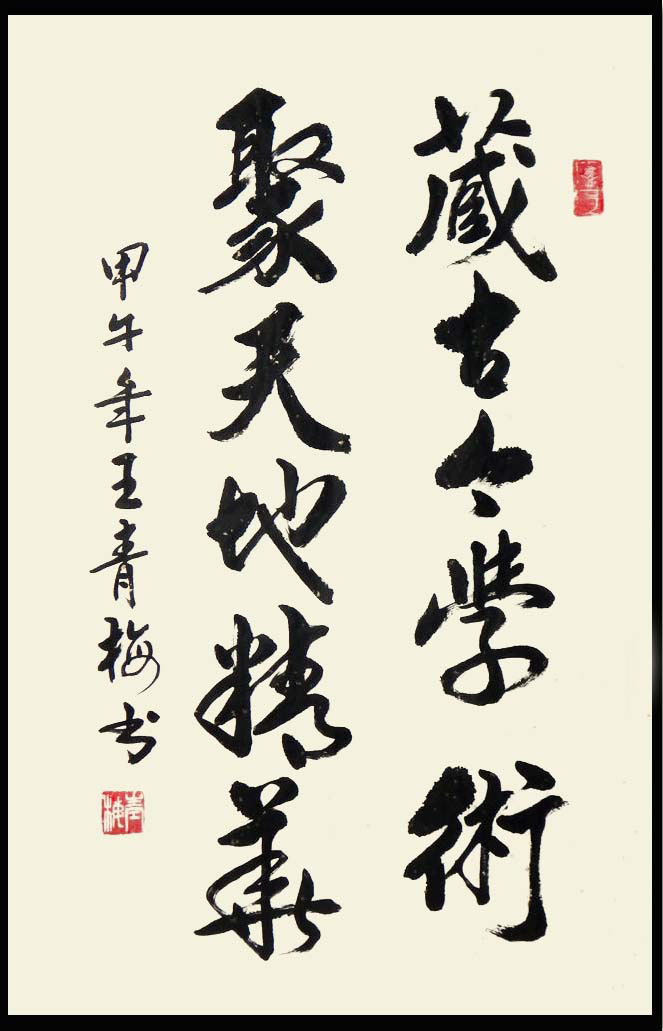 藏古今學術
聚天地精華
甲午年王青梅书
青梅